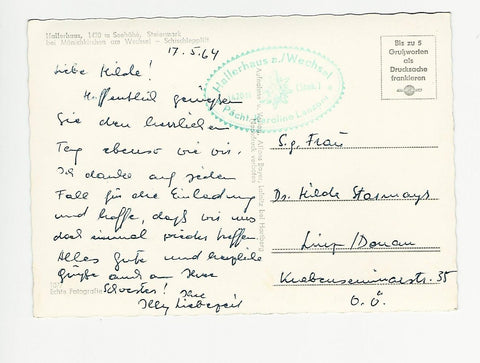 Hallerhaus, 1420 m Seehöhe, Steiermark
bei Mönichkirchen am Wechsel - Sichschlepplift
17.5.64
Liebe Hilde!
Hoffentlich genießen
Sie den herrlichen
Tag ebenso wie wir.
Ich danke auf jeden
Fall für die Einladung
und hoffe, daß wir uns
doch einmal wieder treffen
Alles Gute und herzliche
Grüße auch an Ihre
Schwester! Ihre
Elly Liebezeit
Echte Fotografie
Hallerhaus a./Wechsel
Pächt. Karoline
Bis zu 5
Grußworten
als
Drucksache
frankieren
S.g. Frau
Dr. Hilde
Linz/Donau
Krebenseminarstr. 35
O.Ö.